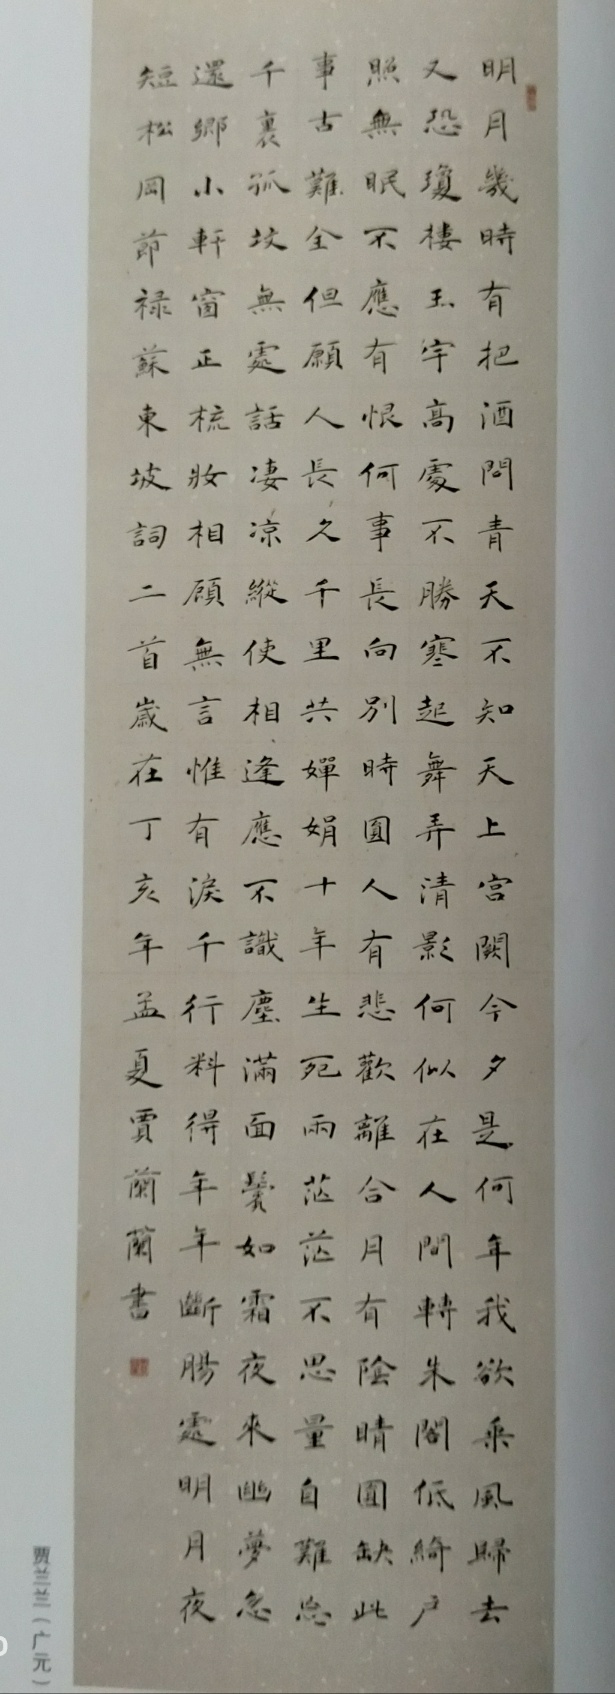 明月幾時有把酒問青天不知天上宮闕今夕是何年我欲乘風歸去
又恐瓊樓玉宇高處不勝寒起舞弄清影何似在人間轉朱閣低綺戶
照無眠不應有恨何事長向別時圓人有悲歡離合月有陰晴圓缺此
事古難全但願人長久千里共嬋娟十年生死兩茫茫不思量自難忘
千裏孤墳無處話凄凉縱使相逢應不識塵滿面鬢如霜夜來幽夢忽
還鄉小軒窗正梳妝相顧無言惟有淚千行料得年年斷腸處明月夜
短松岡節禄蘇東坡詞二首歲在丁亥年孟夏賈蘭蘭書
贾兰兰（广元）